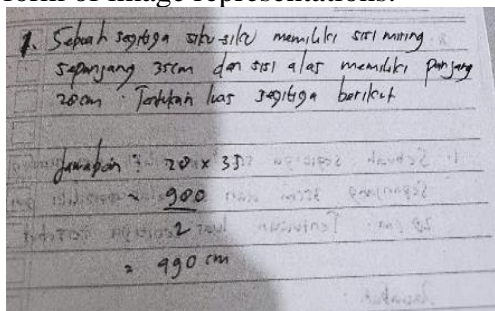 form of image representations.
1. Sebuah segitiga siku-siku memiliki sisi miring
sepanjang 35cm dan sisi alas memiliki panjang
28cm. Tentukan luas segitiga berikut
Jawaban : 28 x 35
= 980
2
= 490 cm